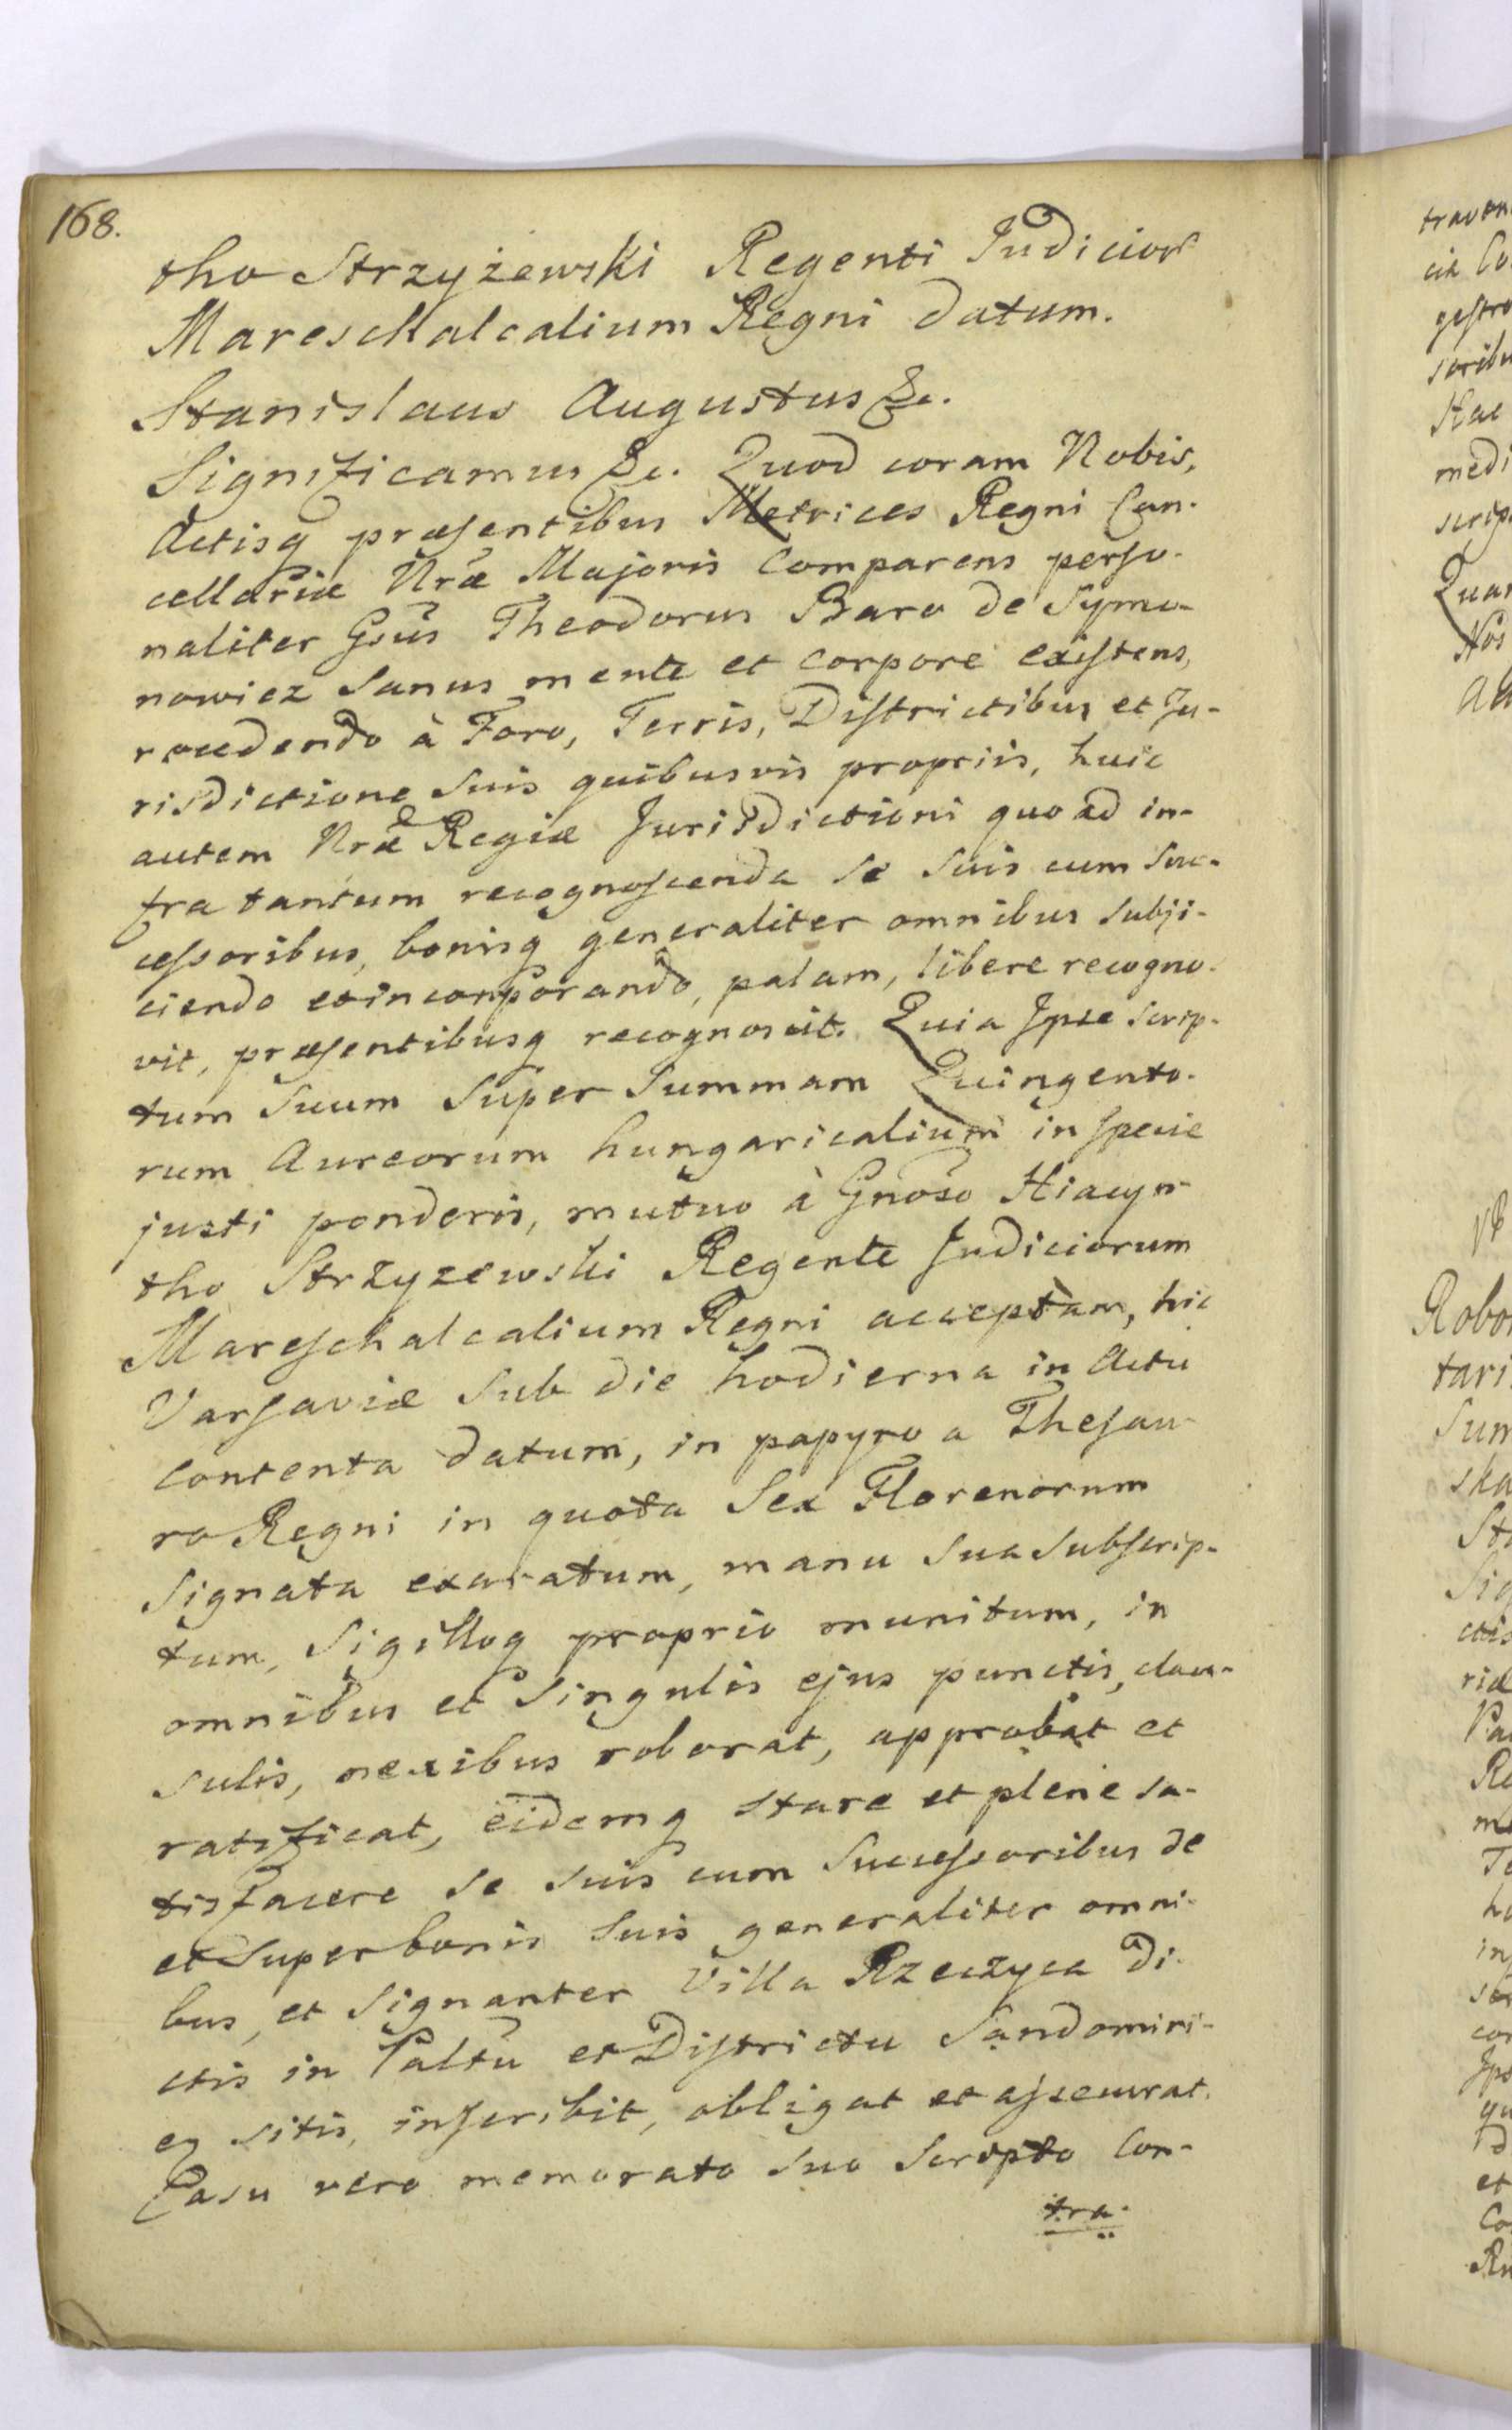 168.
tho Strzyżewski Regenti Judicior
Mareschalcalium Regni datum.
Stanislaus Augustus &c.
Significamus &c. Quod coram Nobis,
Actisq præsentibus Metrices Regni Can-
cellariæ Nræ Majoris Comparens perso-
naliter Gsus Theodorus Baro de Symo-
nowicz Sanus mente et corpore existens,
recedendo à Foro, Terris, Districtibus et Ju-
risdictione Suis quibusvis propriis, huic
autem Nræ Regiæ Jurisdictioni quo ad in-
fra tantum recognoscenda se suis cum suc-
cessoribus, bonisq generaliter omnibus subji-
ciendo et incorporando, palam, libere recogno-
vit, præsentibusq recognoscit. Quia Ipse scrip-
tum Suum Super Summam Quingento-
rum Aureorum hungaricalium in specie
justi ponderis, mutuo à Gnoso Hiacyn-
tho Strzyzewski Regente Judiciorum
Mareschalcalium Regni acceptam, hic
Varsaviæ Sub die hodierna in Actu
contenta datum, in papyro a Thesau-
ro Regni in quota Sex Florenorum
Signata exaratum, manu sua subscrip-
tum, Sigilloq proprio munitum, in
omnibus et Singulis ejus punctis, clau-
sulis, nexibus roborat, approbat et
ratificat, eidemq stare et plene sa-
tisfacere se suis cum Successoribus de
et Super bonis Suis generaliter omni-
bus, et Signanter Villa Rzeczyca di-
ctis in Paltu et Districtu Sandomiri-
en sitis, inscribit, obligat et assecurat.
Casu vero memorato suo Scripto Con-
tra-
traven
cia Co
gestro
soribu
Hac
medi
scrip
Quar
Nos
Robo
tari
Sum
ska
Sta
Sig
ctis
riæ
Pa
Re
me
Te
ho
in
cor
Ips
qu
et
Co